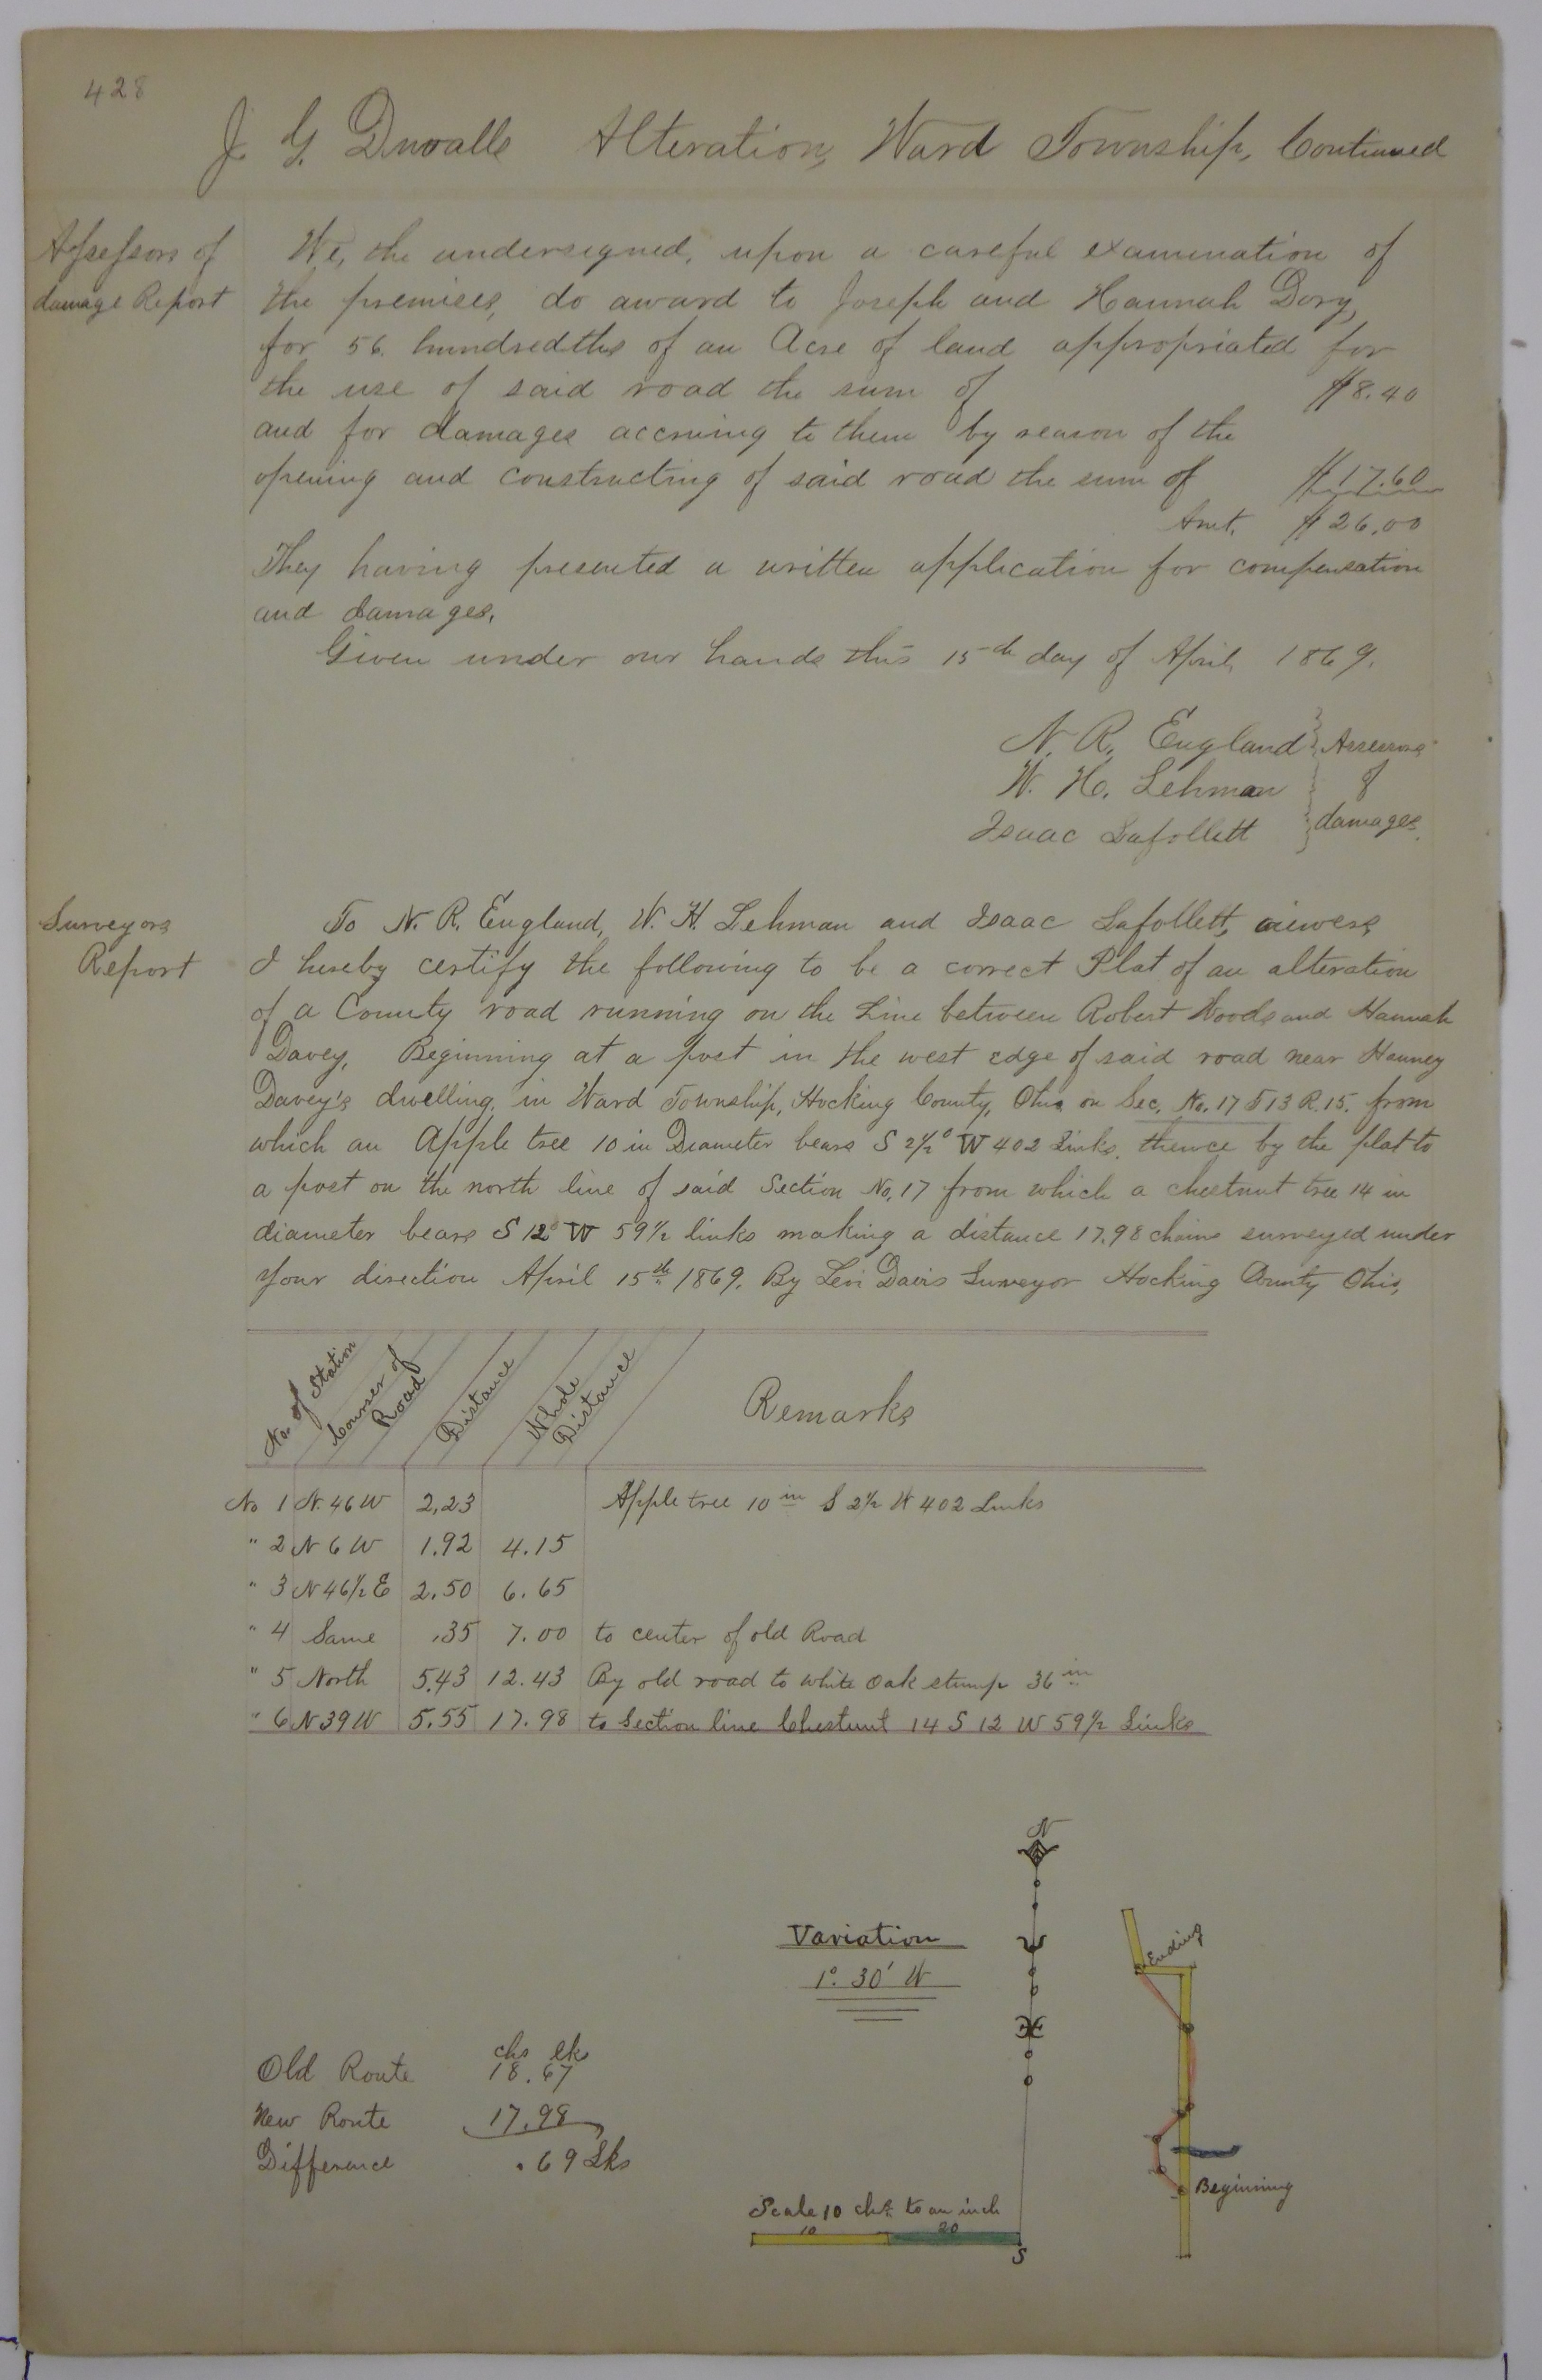 428
J. G. Duvalls Alteration, Ward Township, Continued
Assessors of
damage Report
We, the undersigned, upon a careful examination of
the premises, do award to Joseph and Hannah Dory,
for 56. hundredths of an Acre of land appropriated for
the use of said road the sum of $8.40
and for damages accruing to them by reason of the
opening and constructing of said road the sum of $17.60
Amt. $26.00
They having presented a written application for compensation
and damages.
Given under our hands this 15th day of April, 1869.
N. R. England } Assessors
W. H. Lehman } of
Isaac Lafollett } damages.
Surveyors
Report
To N. R. England, W. H. Lehman and Isaac Lafollett, viewers,
I hereby certify the following to be a correct Plat of an alteration
of a County road running on the Line between Robert Woods and Hannah
Davey, Beginning at a post in the west edge of said road near Hanney
Davey's dwelling, in Ward Township, Hocking County, Ohio on Sec. No. 17 T 13 R. 15. from
which an Apple tree 10 in Diameter bears S 2½° W 402 Links. thence by the plat to
a post on the north line of said Section No. 17 from which a chestnut tree 14 in
diameter bears S 12° W 59½ links making a distance 17.98 chains surveyed under
your direction April 15th 1869. By Levi Davis Surveyor Hocking County Ohio,
No. of Station
Courses of Road
Distance
Whole Distance
Remarks
No 1 N. 46 W 2,23 Apple tree 10 in S 2½ W 402 Links
" 2 N 6 W 1.92 4.15
" 3 N 46½ E 2.50 6.65
" 4 Same .35 7.00 to center of old Road
" 5 North 5.43 12.43 By old road to white Oak stump 36 in
" 6 N 39 W 5.55 17.98 to Section line Chestnut 14 S 12 W 59½ Links
N
Variation
1° 30' W
Ending
chs lks
Old Route 18.67
New Route 17.98
Difference .69 Lks
Beginning
Scale 10 chs. to an inch
10 20
S